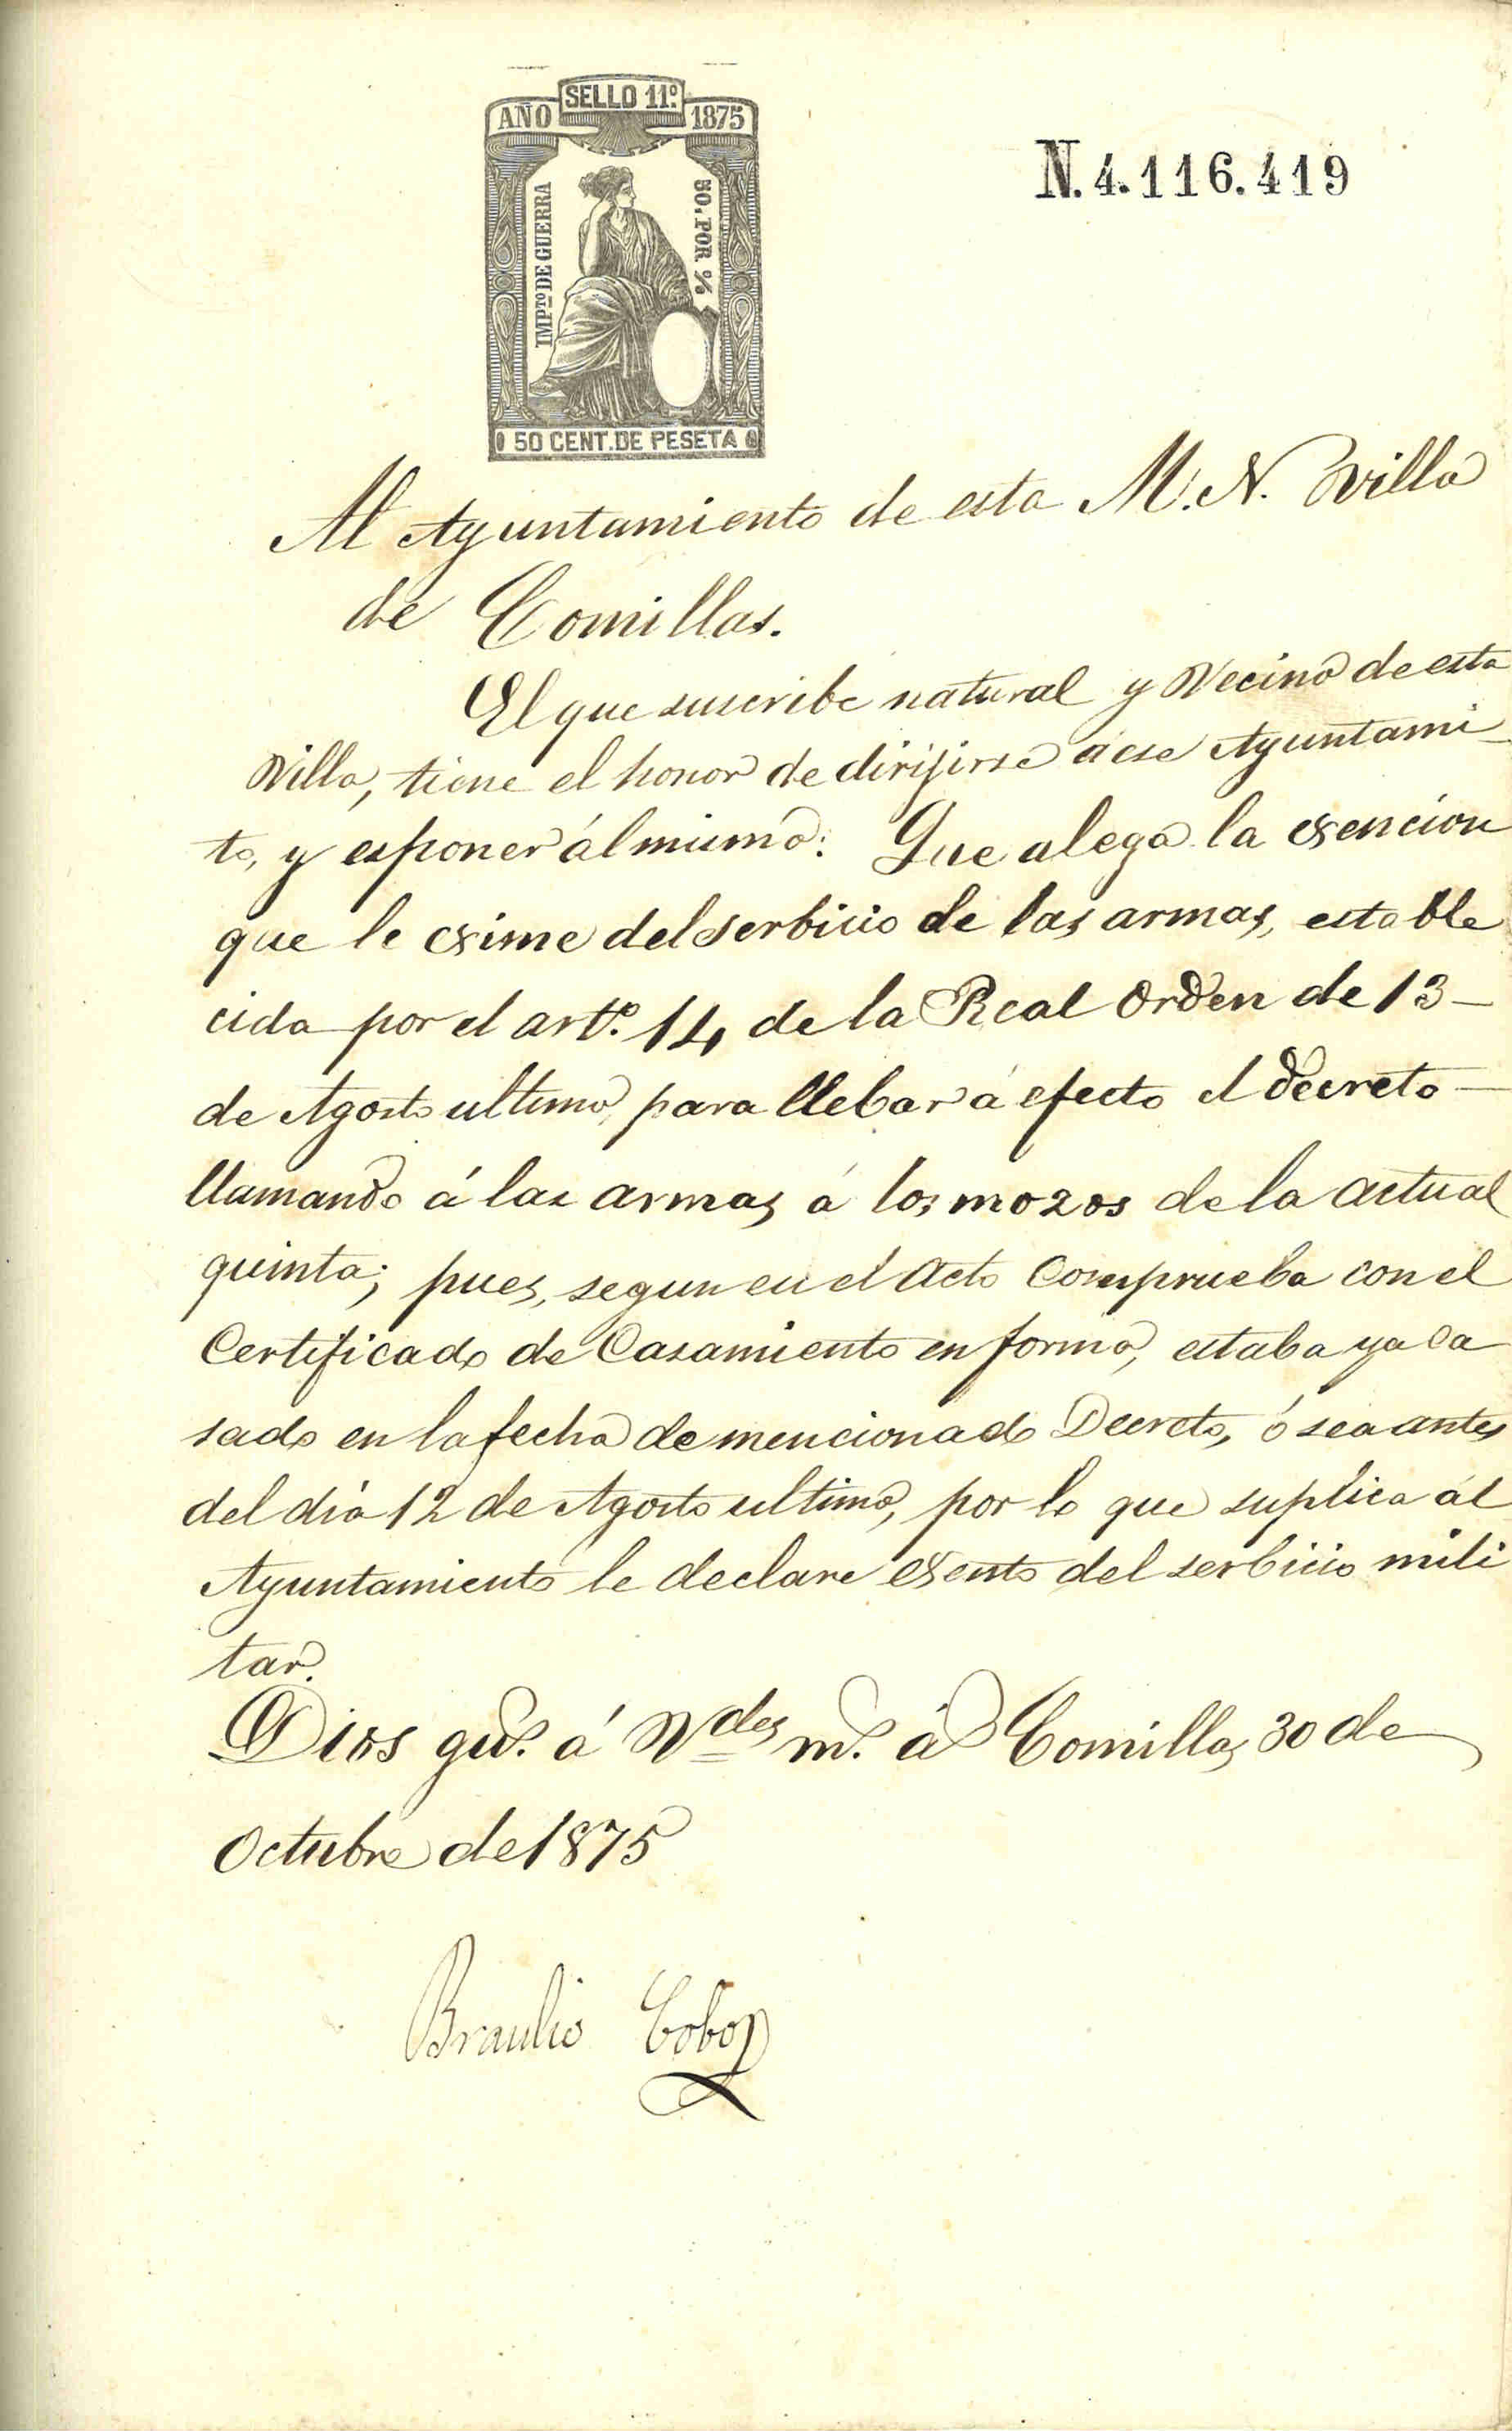 AÑO SELLO 11º 1875
IMPTO DE GUERRA
50. POR %
50 CENT. DE PESETA
N. 4.116.419
Al Ayuntamiento de esta M. N. Villa
de Comillas.
El que suscribe natural y Vecino de esta
Villa, tiene el honor de dirijirse á ese Ayuntami-
to, y esponer ál mismo: Que alega la esencion
que le exime del serbicio de las armas, estable
cida por el artº. 14, de la Real Orden de 13 -
de Agosto ultimo, para llebar á efecto el decreto -
llamando á las armas á los mozos de la actual
quinta; pues, segun en el acto Comprueba con el
Certificado de Casamiento en forma, estaba ya ca
sado en la fecha de mencionado Decreto, ó sea antes
del dia 12 de Agosto ultimo, por lo que suplica ál
Ayuntamiento le declare esento del serbicio mili
tar.
Dios gue. á Vdes ms. as Comillas 30 de
Octubre de 1875
Braulio Cobo